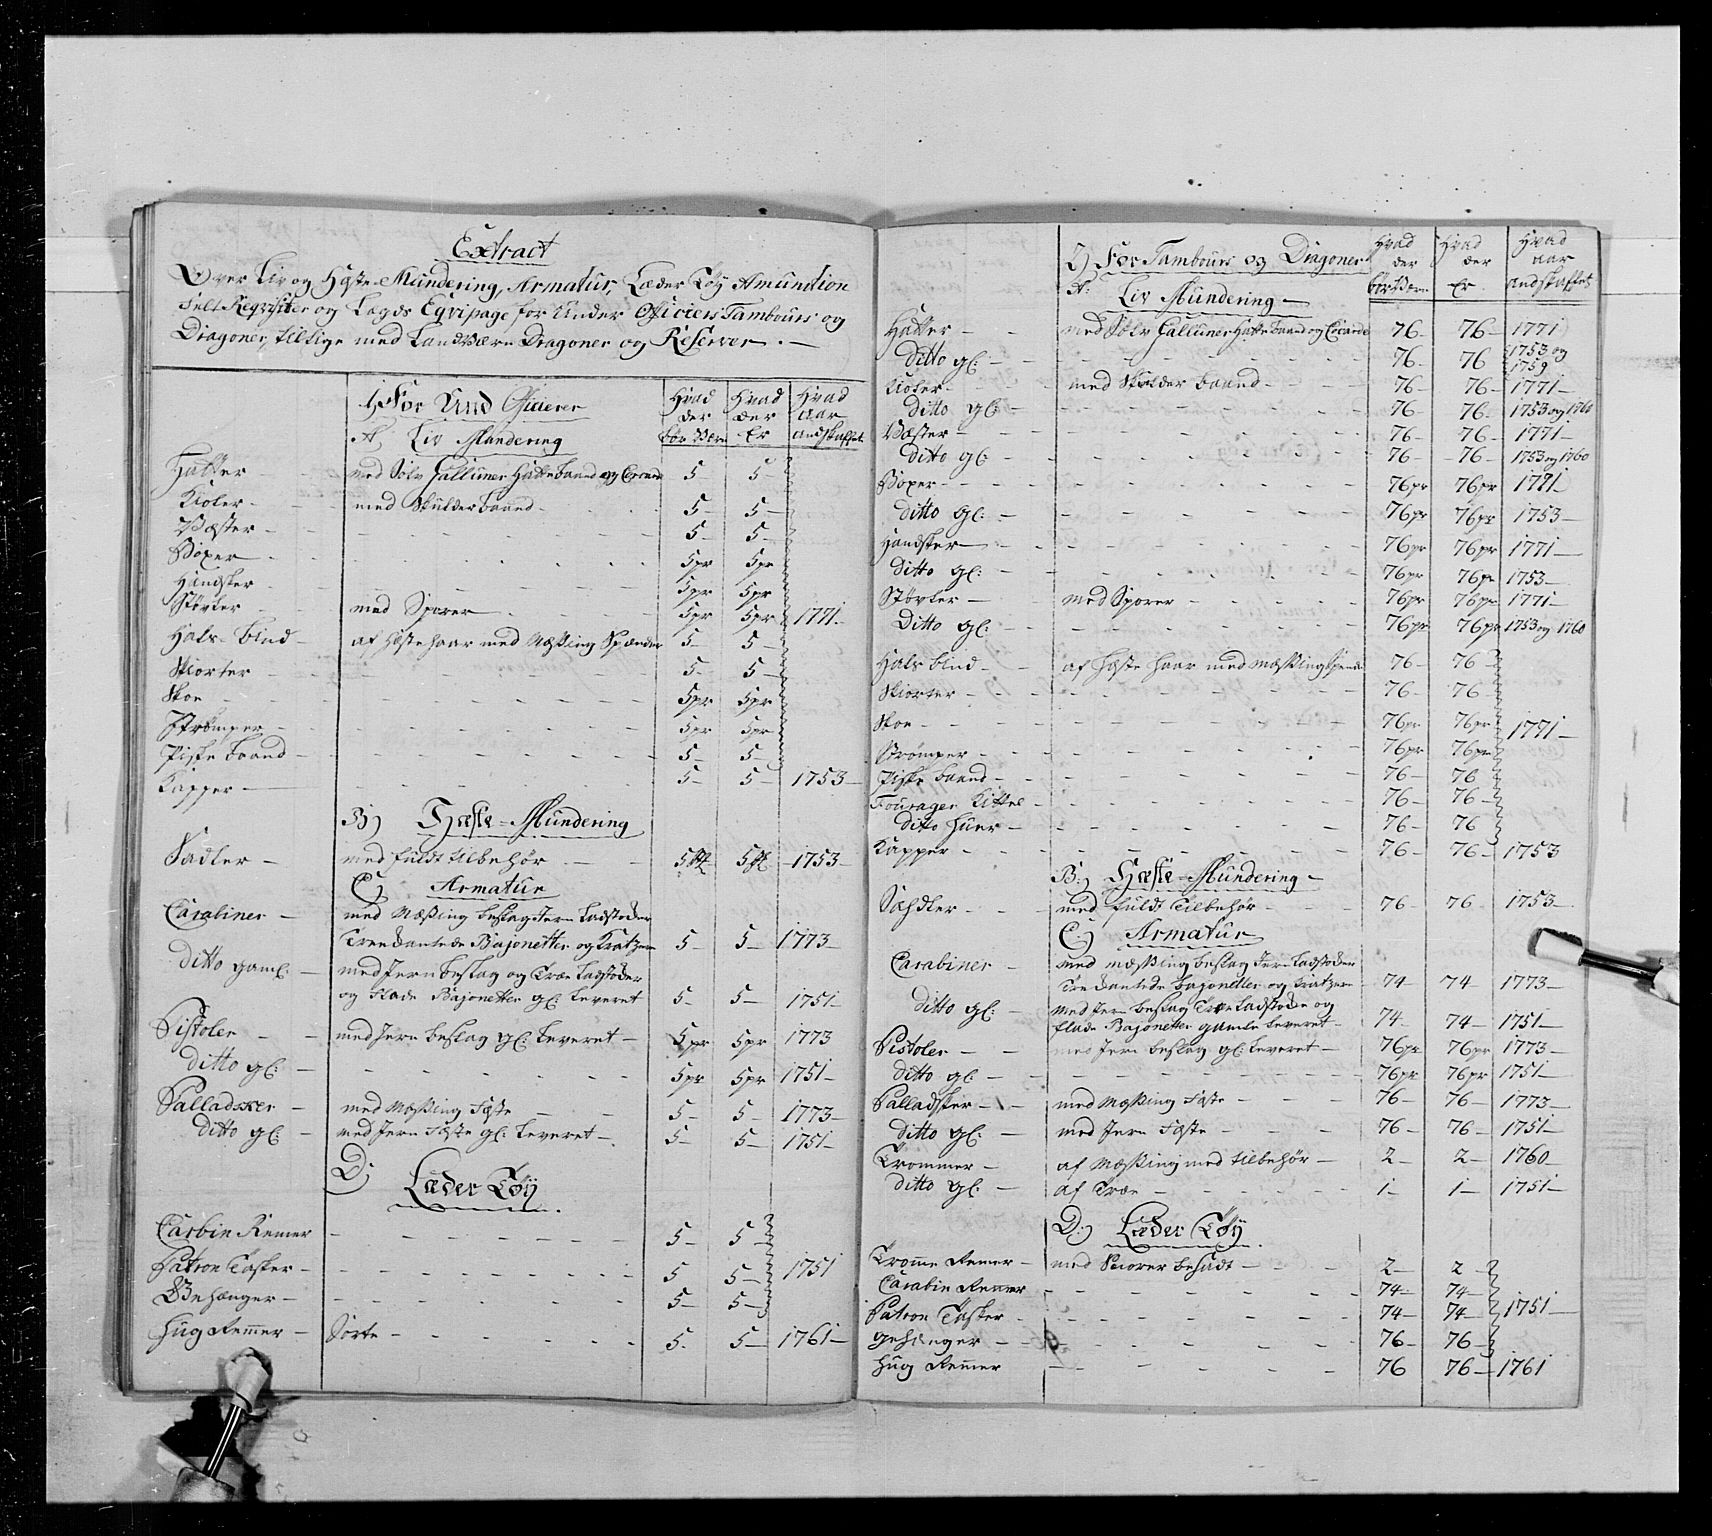 Extract
Over Liv og Hæste Mundering, Armatur, Læder Töÿ Amunition
Felt Reqvisiter og Lagds Eqvipage for Under Officiers Tambours og
Dragoner, tillige med Landværn Dragoner og Reserver. —
1, For Und Officierer
Hvad der bör Være
Hvad der Er
Hvad Aar andskaffet
A, Liv Mundering
Hatter — med Sølv Galluner Hattebaand og Cocarde 5 — 5 —
Kioler — med Skulderbaand — 5 — 5 —
Væster — 5 — 5 —
Boxer — 5pr 5pr
Handsker — 5pr 5pr
Støvler — med Sporer — 5pr 5pr 1771 —
Hals-bind — af Hæstehaar med Mæssing Spænder 5 — 5 —
Skiorter — 5 — 5 —
Skoe — 5pr 5pr
Strømper — 5pr 5pr
Piske baand — 5 — 5 —
Kapper — 5 — 5 — 1753 —
B) Hæste-Mundering
Sadler — med fuldt tilbehør — 5 5 1753 —
C) Armatur
Carabiner — med Mæssing beslag Jern Ladstoder
Trekantede Bajonetter og Kratzer 5 — 5 — 1773 —
ditto gaml: — med Jern beslag og Træe Ladstoder
og Flade Bajonetter gl: Leveret 5 — 5 — 1751 —
Pistoler — med Jern beslag gl: Leveret — 5pr 5pr 1773
ditto gl: — 5pr 5pr 1751 —
Palladsker — med Mæssing Fæste — 5 — 5 — 1773 —
ditto gl: — med Jern Fæste gl: Leveret — 5 — 5 — 1751 —
D; Læder Töÿ
Carbin Remer — 5 — 5 —
Patron Tasker — 5 5 — 1751
Gehænger — 5 — 5 —
Hug Remer — Sorte — 5. 5 — 1761 —
2) For Tambours og Dragoner
Hvad der bör Være
Hvad der Er
Hvad aar andskaffet
A: Liv Mundering —
Hatter — med Sølv Galluner Hattebaand og Cocarde 76 — 76 — 1771
ditto gl. — 76 — 76 1753 og 1759
Kioler — med Skulder baand — 76 — 76 — 1771 —
ditto gl: — 76 — 76 — 1753 og 1760
Væster — 76 — 76 — 1771 —
ditto gl — 76 — 76 — 1753 og 1760
Boxer — 76pr 76pr 1771 —
ditto gl: — 76pr 76pr 1753 —
Handsker — 76pr 76pr 1771 —
ditto gl: — 76pr 76pr 1753 —
Støvler — med Sporer — 76pr 76pr 1771 —
Ditto gl: — 76pr 76pr 1753 og 1760
Hals bind — af Hæste haar med Mæssing Spend 76 — 76
Skiorter — 76 — 76 —
Skoe — 76pr 76pr 1771 —
Strømper — 76pr 76pr
Piske baand — 76 — 76 —
Fourage Kittel — 76 — 76 —
ditto Huer — 76 — 76
Kapper — 76 — 76 — 1753
B: Hæste-Mundering —
Sahdler — med fuldt Tilbehør — 76 — 76 — 1753 —
C; Armatur
Carabiner — med Mæssing beslag Jern Ladstoder
Trekantede bajonetter og Kratzer 74 — 74 — 1773 —
ditto gl: — med Jern beslag Træe Ladstode og
flade Bajonetter gamle Leveret — 74 — 74 — 1751 —
Pistoler — med Jern beslag gl: Leveret — 76pr 76pr 1773 —
ditto gl — 76pr 76pr 1751 —
Palladsker — med Mæssing Fæste — 76 — 76 — 1773 —
ditto gl: — med Jern Fæste — 76 — 76 — 1751 —
Trommer — af Mæssing med tilbehør — 2 — 2 — 1760 —
ditto gl: — af Træe — 1 — 1 — 1751 —
D:) Læder Töÿ
Tromme Remer — med Snorer besadt — 2 — 2 —
Carabin Remer — 74 — 74 —
Patron Tasker — 74 — 74 — 1751 —
gehænger — 76 — 76 —
Hug Remer — 76 76 — 1761